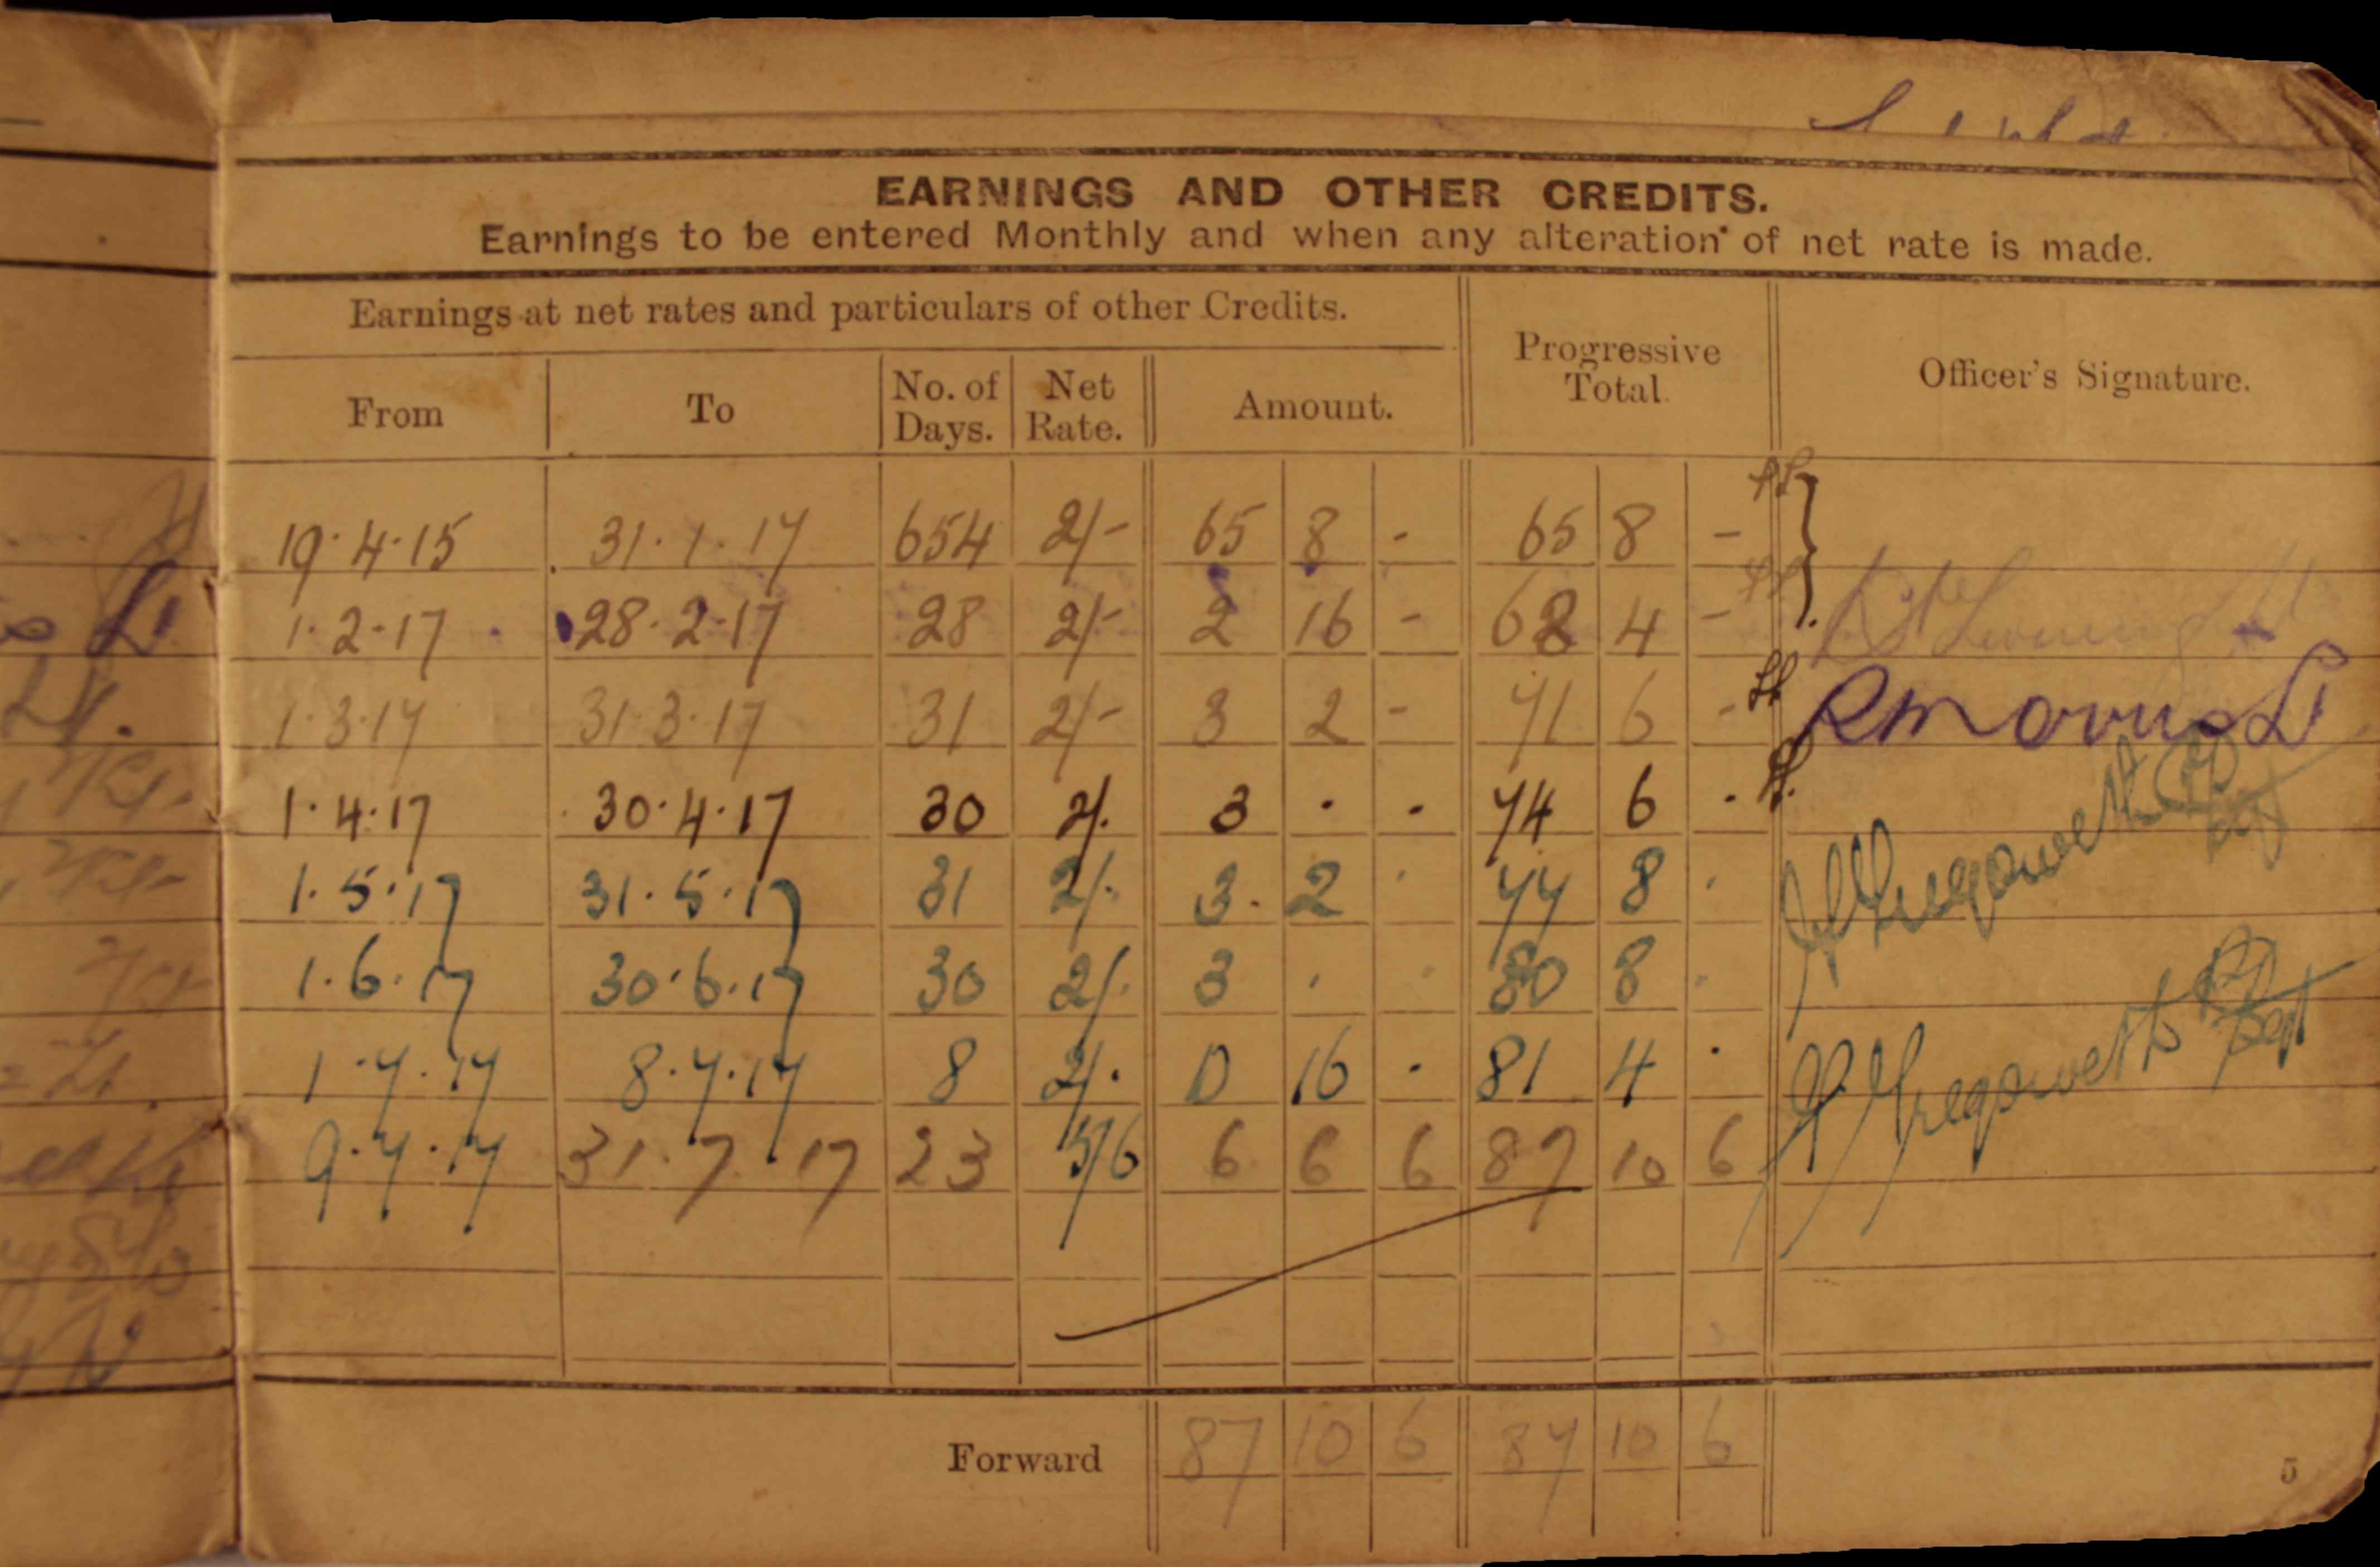 EARNINGS AND OTHER CREDITS.
Earnings to be entered Monthly and when any alteration of net rate is made.
Earnings at net rates and particulars of other Credits.
Progressive Total.
Officer's Signature.
From To No. of Days. Net Rate. Amount.
19·4·15 31·1·17 654 2/- 65 8 - 65 8 -
1·2·17 28·2·17 28 2/- 2 16 - 68 4 -
1·3·17 31·3·17 31 2/- 3 2 - 71 6 -
1·4·17 30·4·17 30 2/. 3 · - 74 6 ·
1·5·17 31·5·17 31 2/. 3·2 · 77 8 ·
1·6·17 30·6·17 30 2/. 3 · · 80 8 ·
1·7·17 8·7·17 8 2/· 0 16 · 81 4 ·
9·7·17 31·7·17 23 5/6 6 6 6 87 10 6
Forward 87 10 6 87 10 6
5